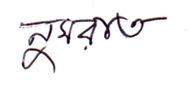 নুসরাত